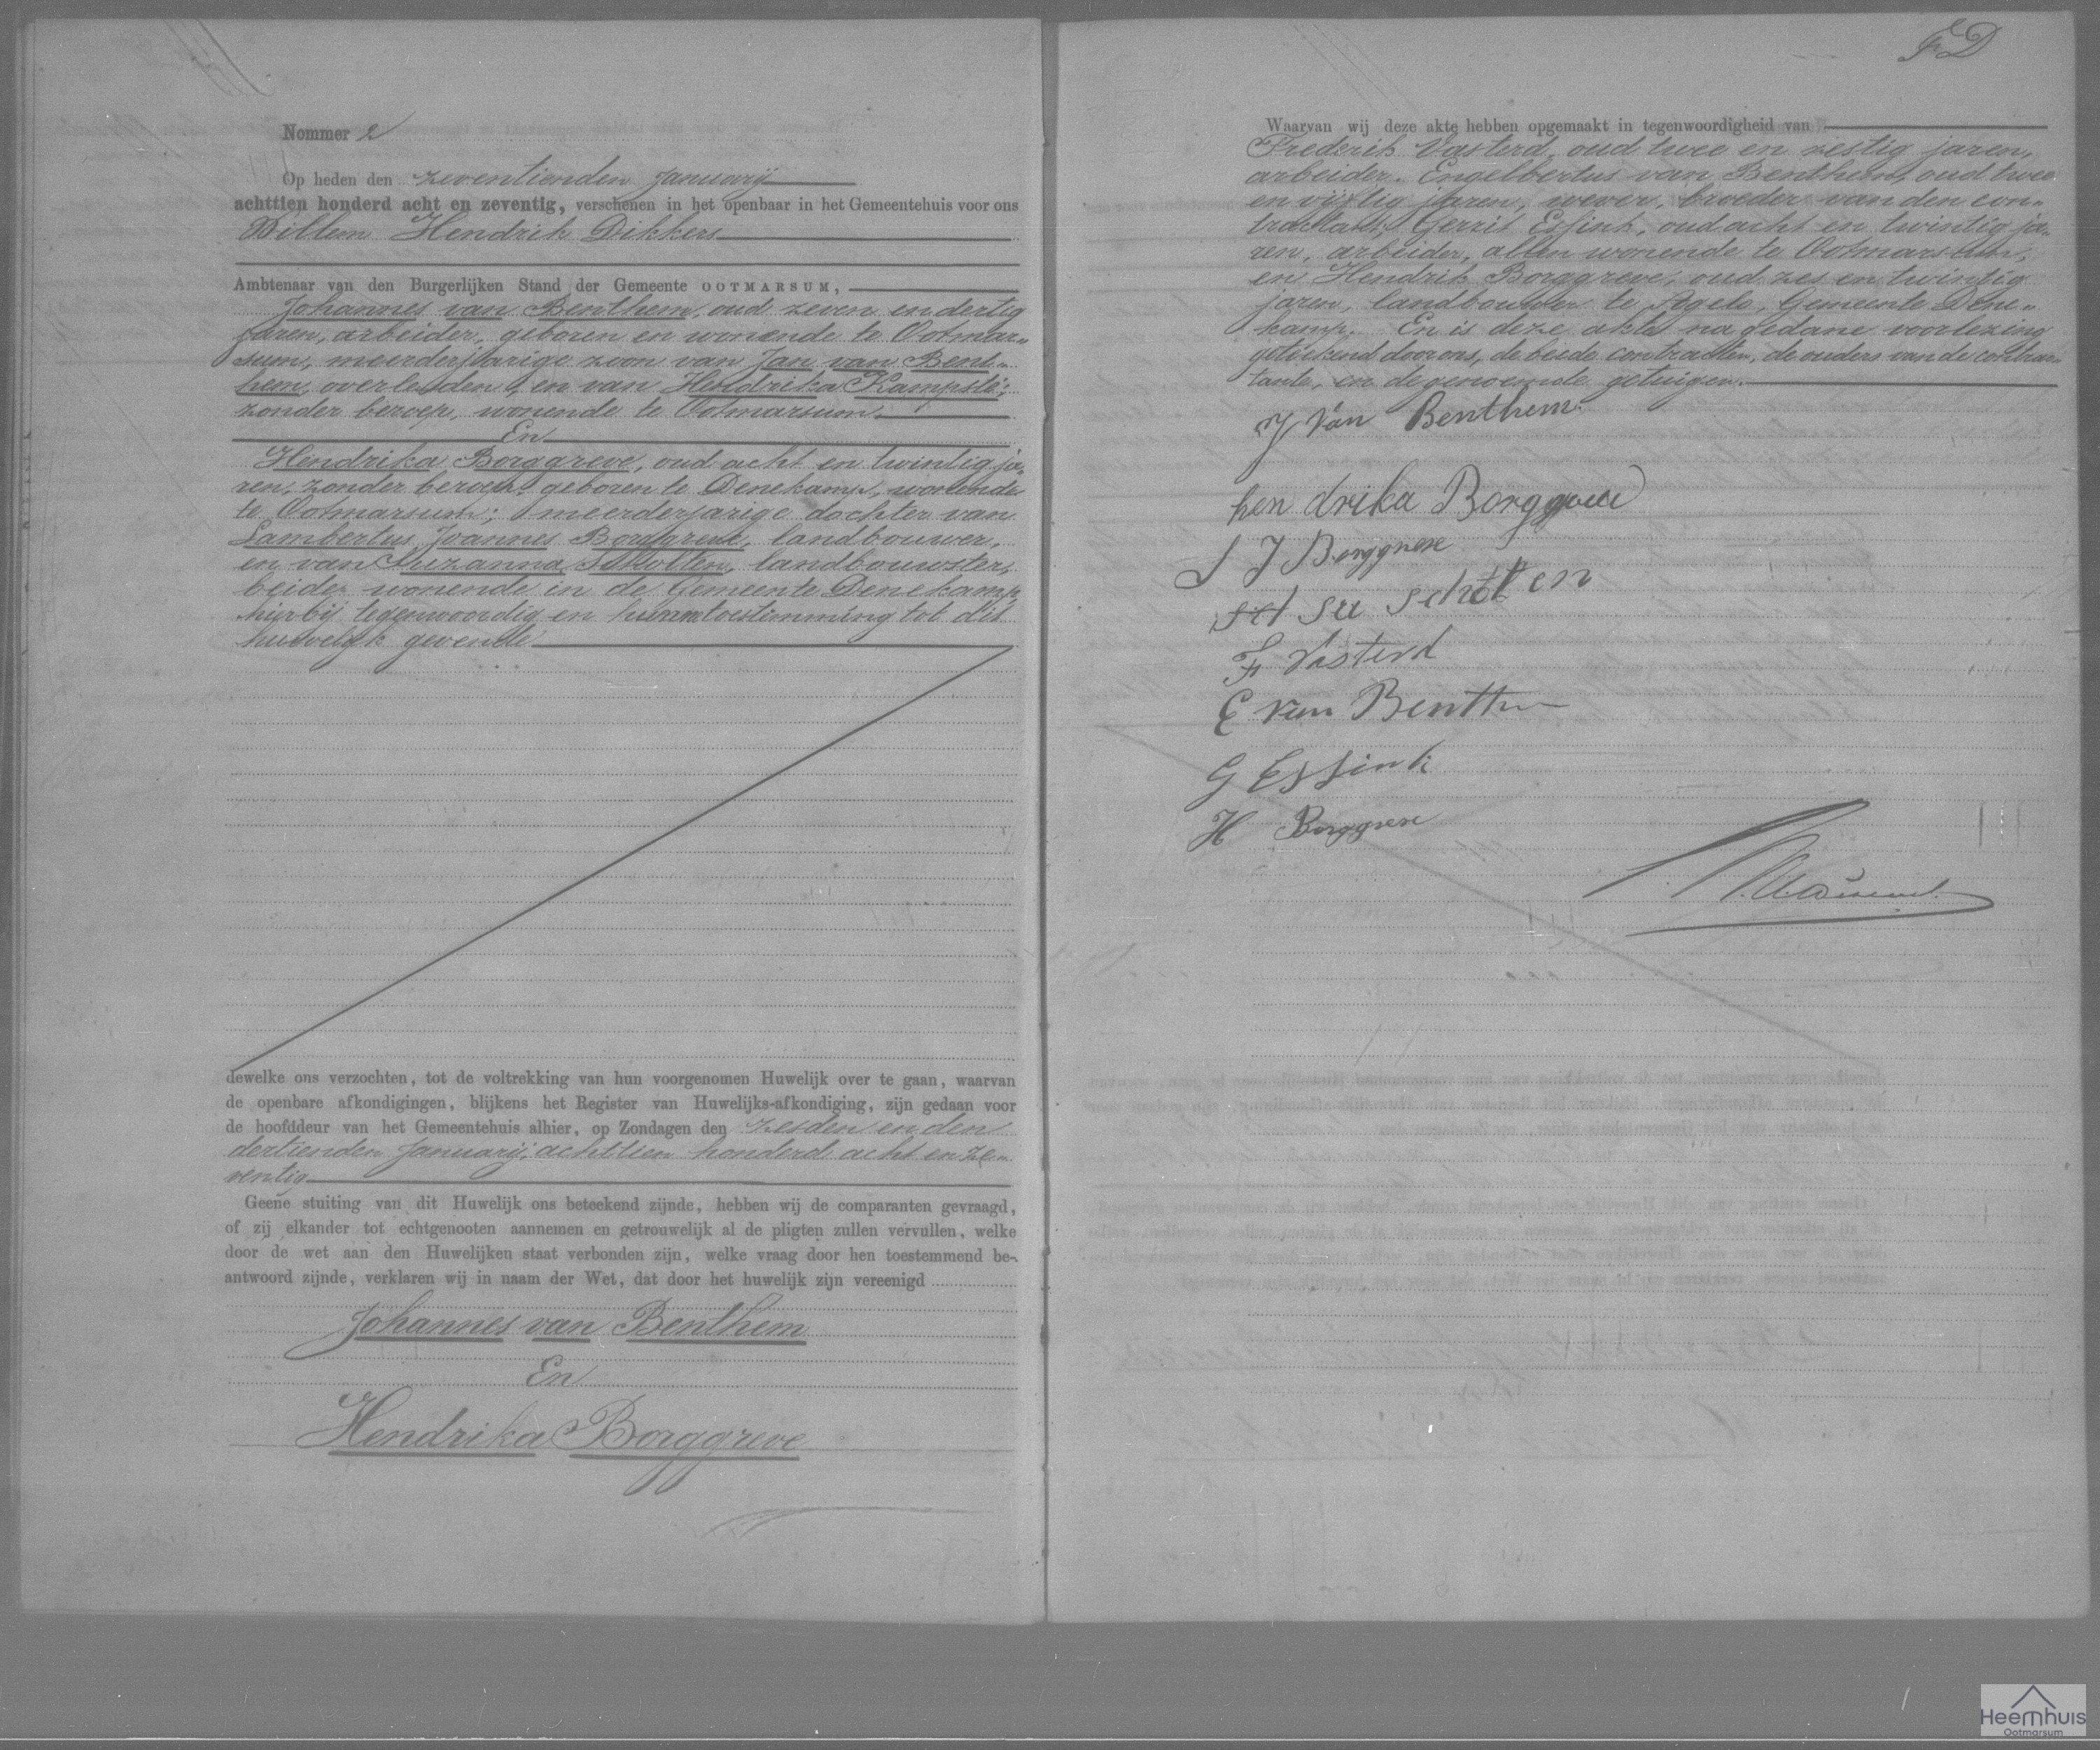 Nommer 2
Op heden den zeventienden Januarij
achttien honderd acht en zeventig, verschenen in het openbaar in het Gemeentehuis voor ons
Willem Hendrik Dikkers
Ambtenaar van den Burgerlijken Stand der Gemeente OOTMARSUM,
Johannes van Benthem, oud zeven en dertig
jaren, arbeider, geboren en wonende te Ootmar-
sum, meerderjarige zoon van Jan van Bent-
hem, overleden, en van Hendrika Kampslé,
zonder beroep, wonende te Ootmarsum.
En
Hendrika Borggreve, oud acht en twintig ja-
ren, zonder beroep, geboren te Denekamp, wonende
te Ootmarsum; meerderjarige dochter van
Lambertus Joannes Borggreve, landbouwer,
en van Suzanna Scholten, landbouwster,
beide wonende in de Gemeente Denekamp,
hierbij tegenwoordig en hunne toestemming tot dit
huwelijk gevende.
dewelke ons verzochten, tot de voltrekking van hun voorgenomen Huwelijk over te gaan, waarvan
de openbare afkondigingen, blijkens het Register van Huwelijks-afkondiging, zijn gedaan voor
de hoofddeur van het Gemeentehuis alhier, op Zondagen den zesden en den
dertienden Januarij, achttien honderd acht en ze-
ventig
Geene stuiting van dit Huwelijk ons beteekend zijnde, hebben wij de comparanten gevraagd,
of zij elkander tot echtgenooten aannemen en getrouwelijk al de pligten zullen vervullen, welke
door de wet aan den Huwelijken staat verbonden zijn, welke vraag door hen toestemmend be-
antwoord zijnde, verklaren wij in naam der Wet, dat door het huwelijk zijn vereenigd
Johannes van Benthem
En
Hendrika Borggreve
FD
Waarvan wij deze akte hebben opgemaakt in tegenwoordigheid van
Frederik Vasterd, oud twee en zestig jaren,
arbeider. Engelbertus van Benthem, oud twee
en vijftig jaren, wever, broeder van den con-
tractant, Gerrit Essink, oud acht en twintig ja-
ren, arbeider, allen wonende te Ootmarsum,
en Hendrik Borggreve, oud zes en twintig
jaren, landbouwer te Agelo, Gemeente Dene-
kamp. En is deze akte na gedane voorlezing
geteekend door ons, de beide contracten, de ouders van de contrac-
tante, en de genoemde getuigen.
J Van Benthem.
hen drika Borggreve
L J Borggreve
su scholten
F Vasterd
E van Benthem
G Essink
H Borggreve
Heemhuis
Ootmarsum